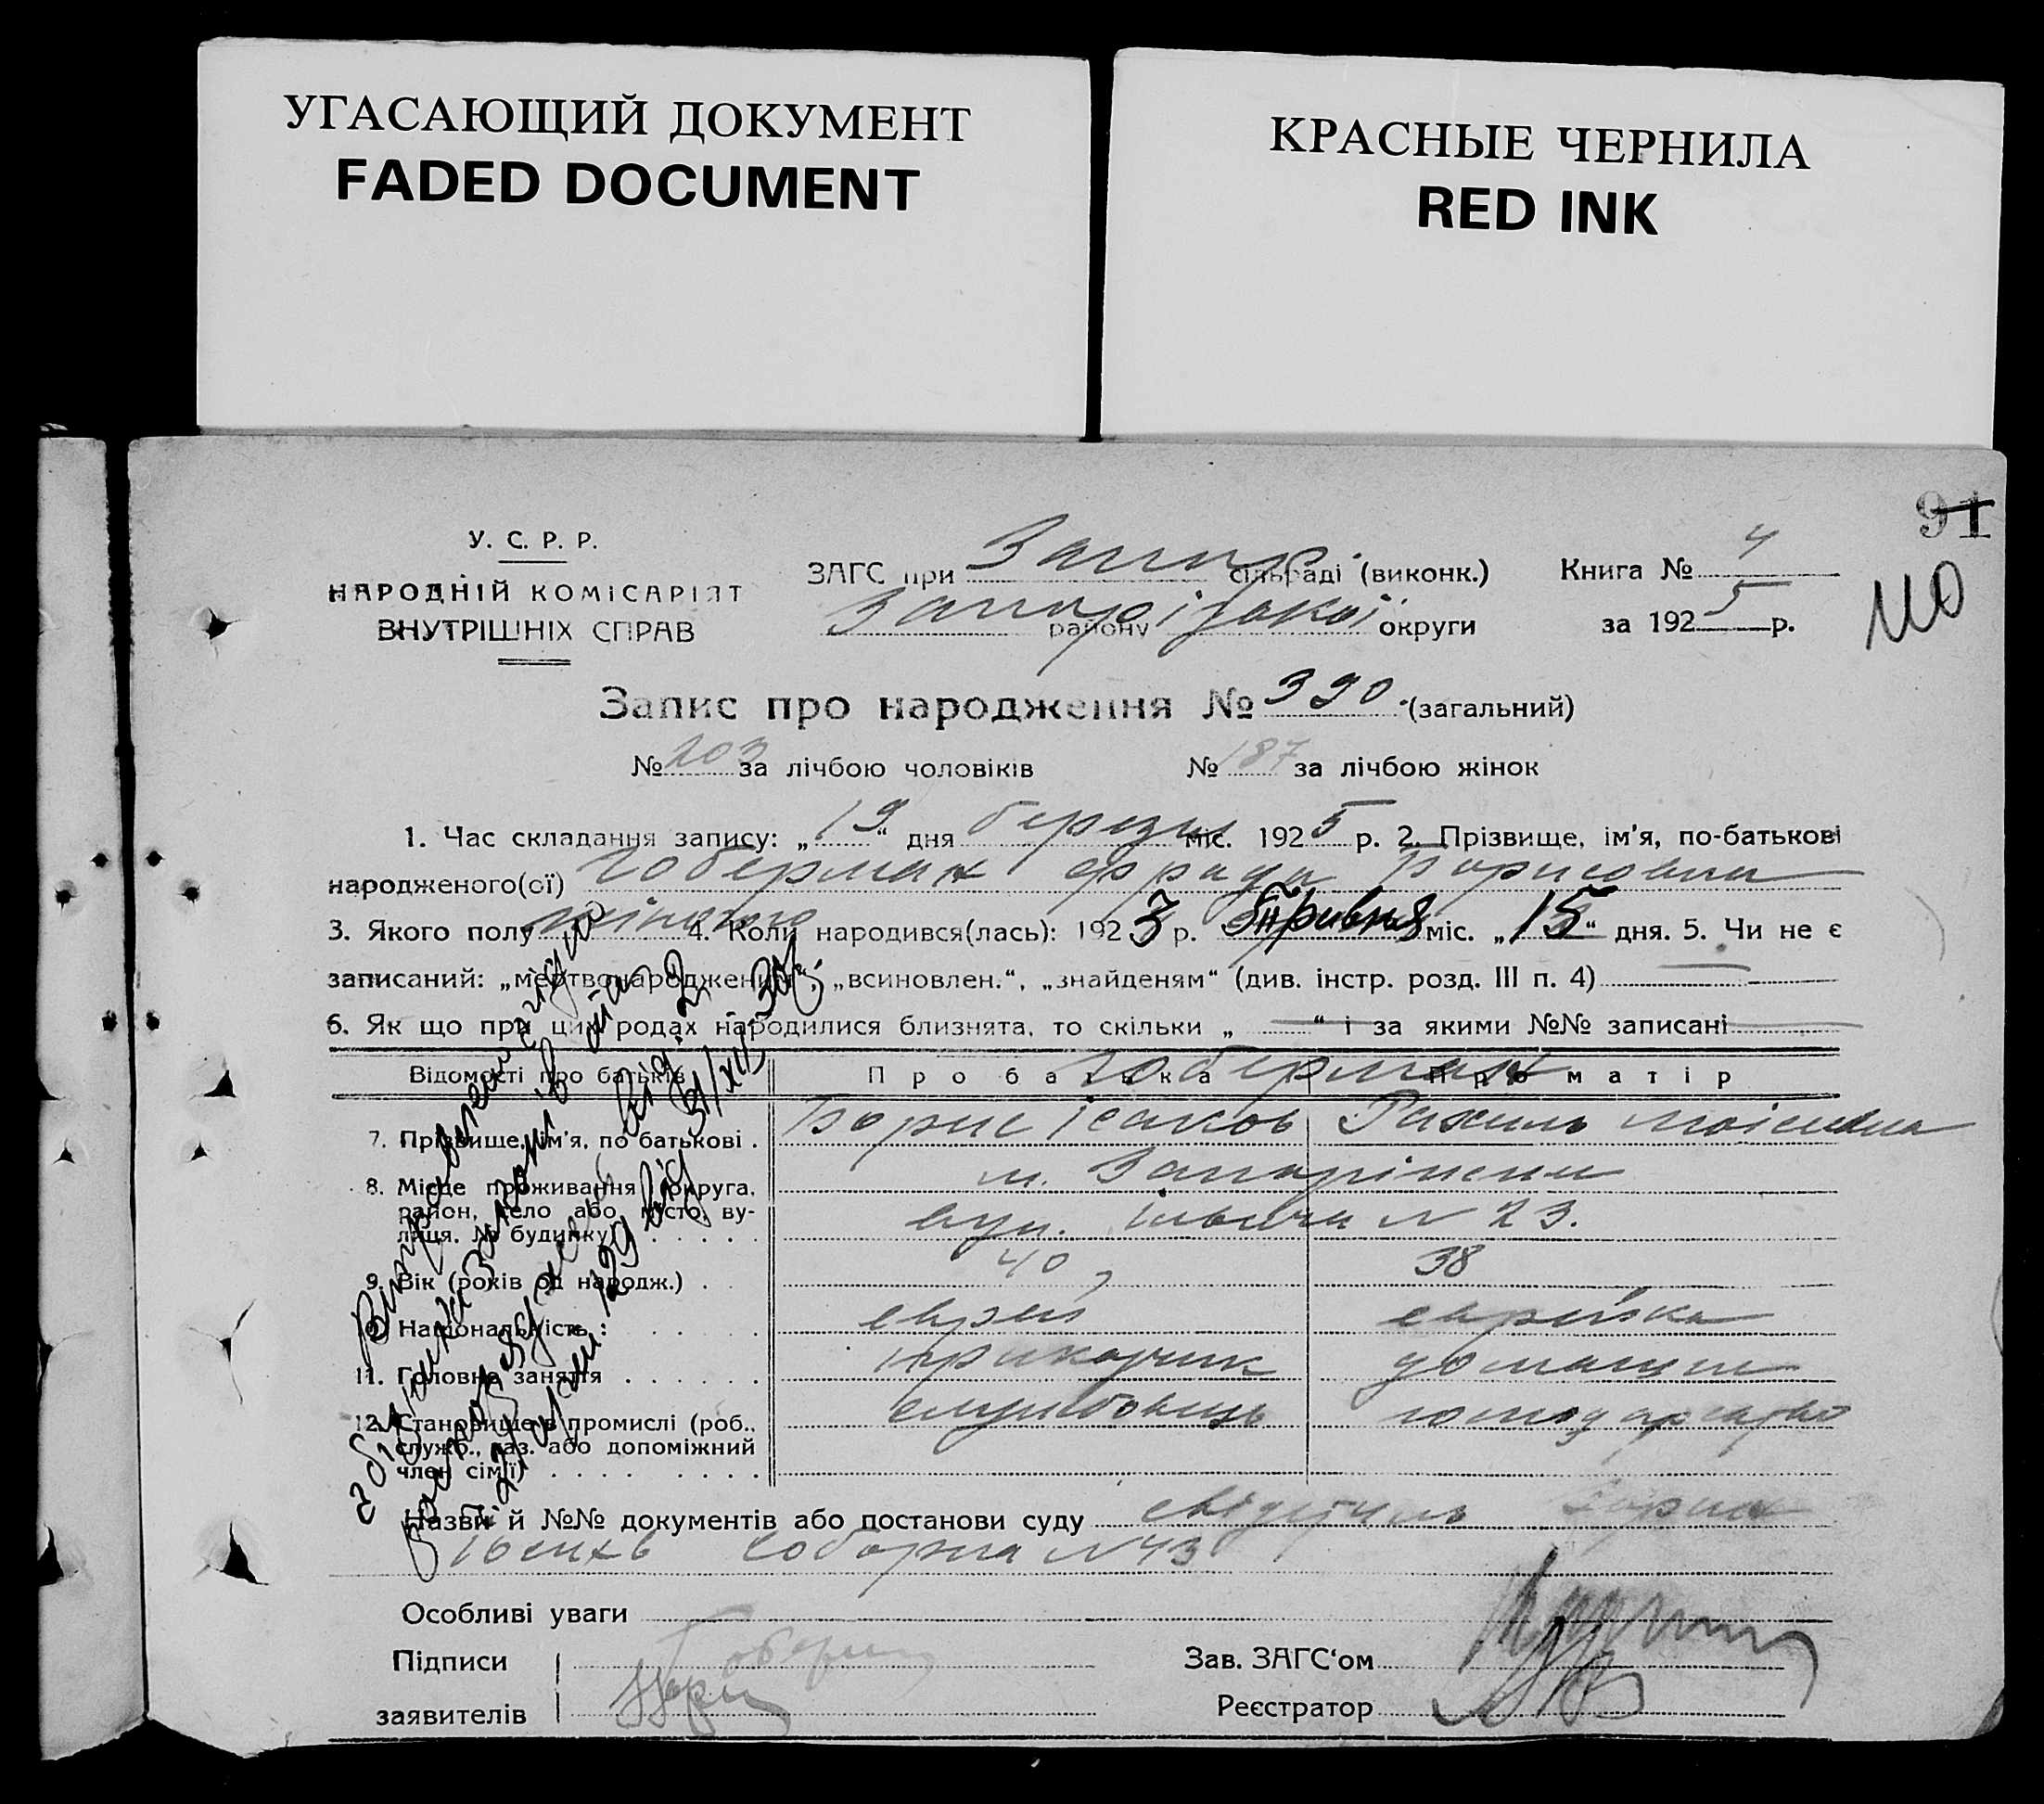 УГАСАЮЩИЙ ДОКУМЕНТ
FADED DOCUMENT
КРАСНЫЕ ЧЕРНИЛА
RED INK
91
110
У. С. Р. Р.
НАРОДНІЙ КОМІСАРІЯТ
ВНУТРІШНІХ СПРАВ
ЗАГС при Запор. сільраді (виконк.)
Запорізької району округи
Книга № 4
за 1925 р.
Запис про народження № 390 (загальний)
№ 203 за лічбою чоловіків № 187 за лічбою жінок
1. Час складання запису: „19“ дня березня міс. 1925 р. 2. Прізвище, ім'я, по-батькові
народженого(ої) Гоберман Фрада Борисовна
3. Якого полу жіночого 4. Коли народився(лась): 1923 р. міс. „15“ дня. 5. Чи не є
записаний: „мертвонародженим“, „всиновлен.“, „знайденям“ (див. інстр. розд. III п. 4)
6. Як що при цих родах народилися близнята, то скільки „ “ і за якими №№ записані
Відомості про батьків Про батька Про матір
Гоберман
7. Прізвище, ім'я, по батькові . Борис Ісаков Рахиль Моісеевна
8. Місце проживання (округа, район, село або місто, вулиця, № будинку) м. Запоріжжя
вул. № 23.
9. Вік (років од народж.) . 40 38
10. Національність : еврей еврейка
11. Головне заняття прикажчик домашнє
12. Становище в промислі (роб., служб., хаз. або допоміжний член сім'ї) службовець господарство
Назви й №№ документів або постанови суду
Соборна № 43
Особливі уваги
Підписи
заявителів
Зав. ЗАГС‘ом
Реєстратор
Виправлено згідно
від 31/XII 30р.